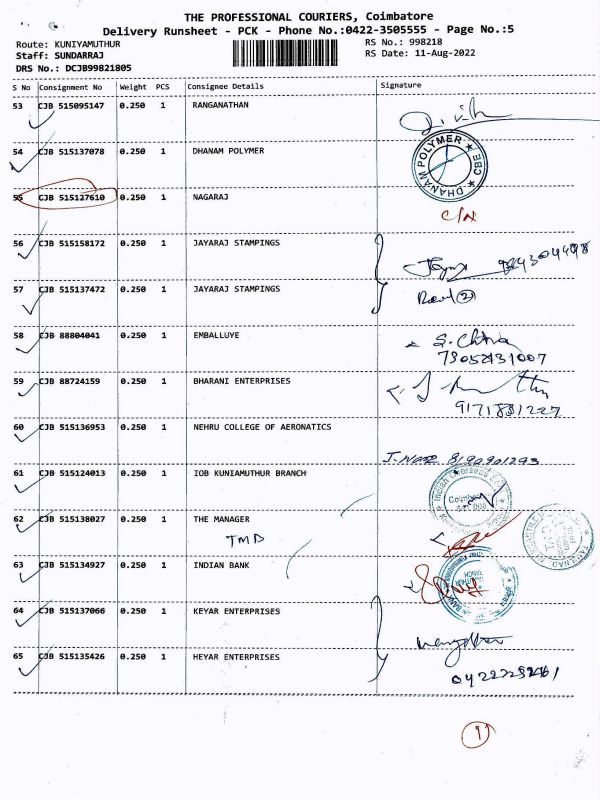 THE PROFESSIONAL COURIERS, Coimbatore
Delivery Runsheet - PCK - Phone No.:0422-3505555 - Page No.:5
Route: KUNIYAMUTHUR RS No.: 998218
Staff: SUNDARRAJ RS Date: 11-Aug-2022
DRS No.: DCJB99821805
S No Consignment No Weight PCS Consignee Details Signature
53 CJB 515095147 0.250 1 RANGANATHAN
54 CJB 515137078 0.250 1 DHANAM POLYMER
DHANAM POLYMER CBE
55 CJB 515127610 0.250 1 NAGARAJ
56 CJB 515158172 0.250 1 JAYARAJ STAMPINGS
57 CJB 515137472 0.250 1 JAYARAJ STAMPINGS
58 CJB 88804041 0.250 1 EMBALLUYE
S. Chitra
59 CJB 88724159 0.250 1 BHARANI ENTERPRISES
60 CJB 515136953 0.250 1 NEHRU COLLEGE OF AERONATICS
8190901293
61 CJB 515124013 0.250 1 IOB KUNIAMUTHUR BRANCH
62 CJB 515138027 0.250 1 THE MANAGER
TMB
63 CJB 515134927 0.250 1 INDIAN BANK
64 CJB 515137066 0.250 1 KEYAR ENTERPRISES
65 CJB 515135426 0.250 1 HEYAR ENTERPRISES